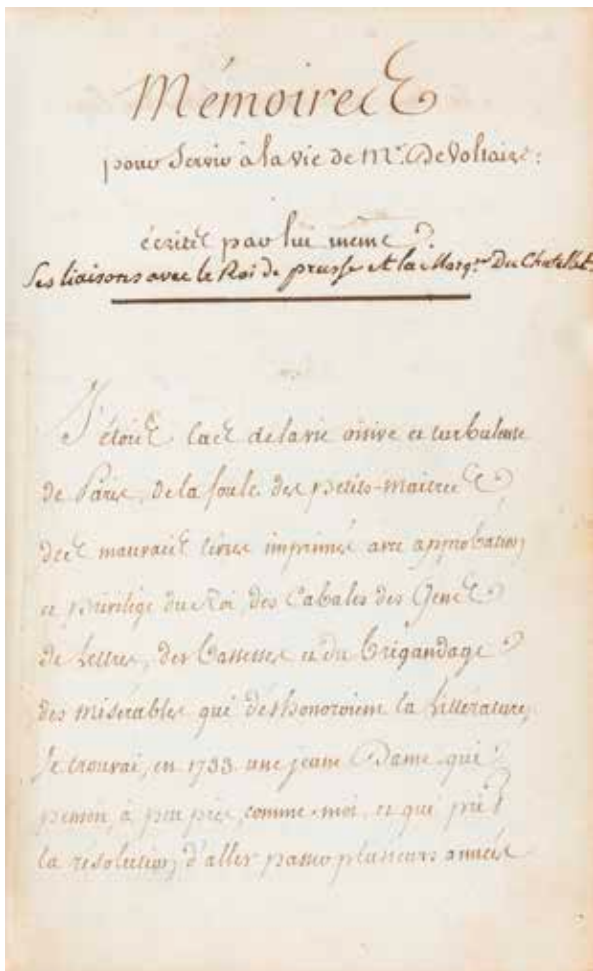 Mémoires
pour Servir à la vie de Mr. De Voltaire:
écrites par lui même.
Ses liaisons avec le Roi de prusse et la Marq.se Du Chatellet.
J'étois las de la vie oisive et turbulente
de Paris, de la foule des petits-maitres
des mauvais livres imprimés avec approbation
et privilège du Roi, des Cabales des Gens
de Lettres, des bassesses et du brigandage
des misérables qui déshonoroient la Littérature,
Je trouvai, en 1733 une jeune Dame qui
pensoit, à peu près, comme moi, et qui prit
la résolution, d'aller passer plusieurs années